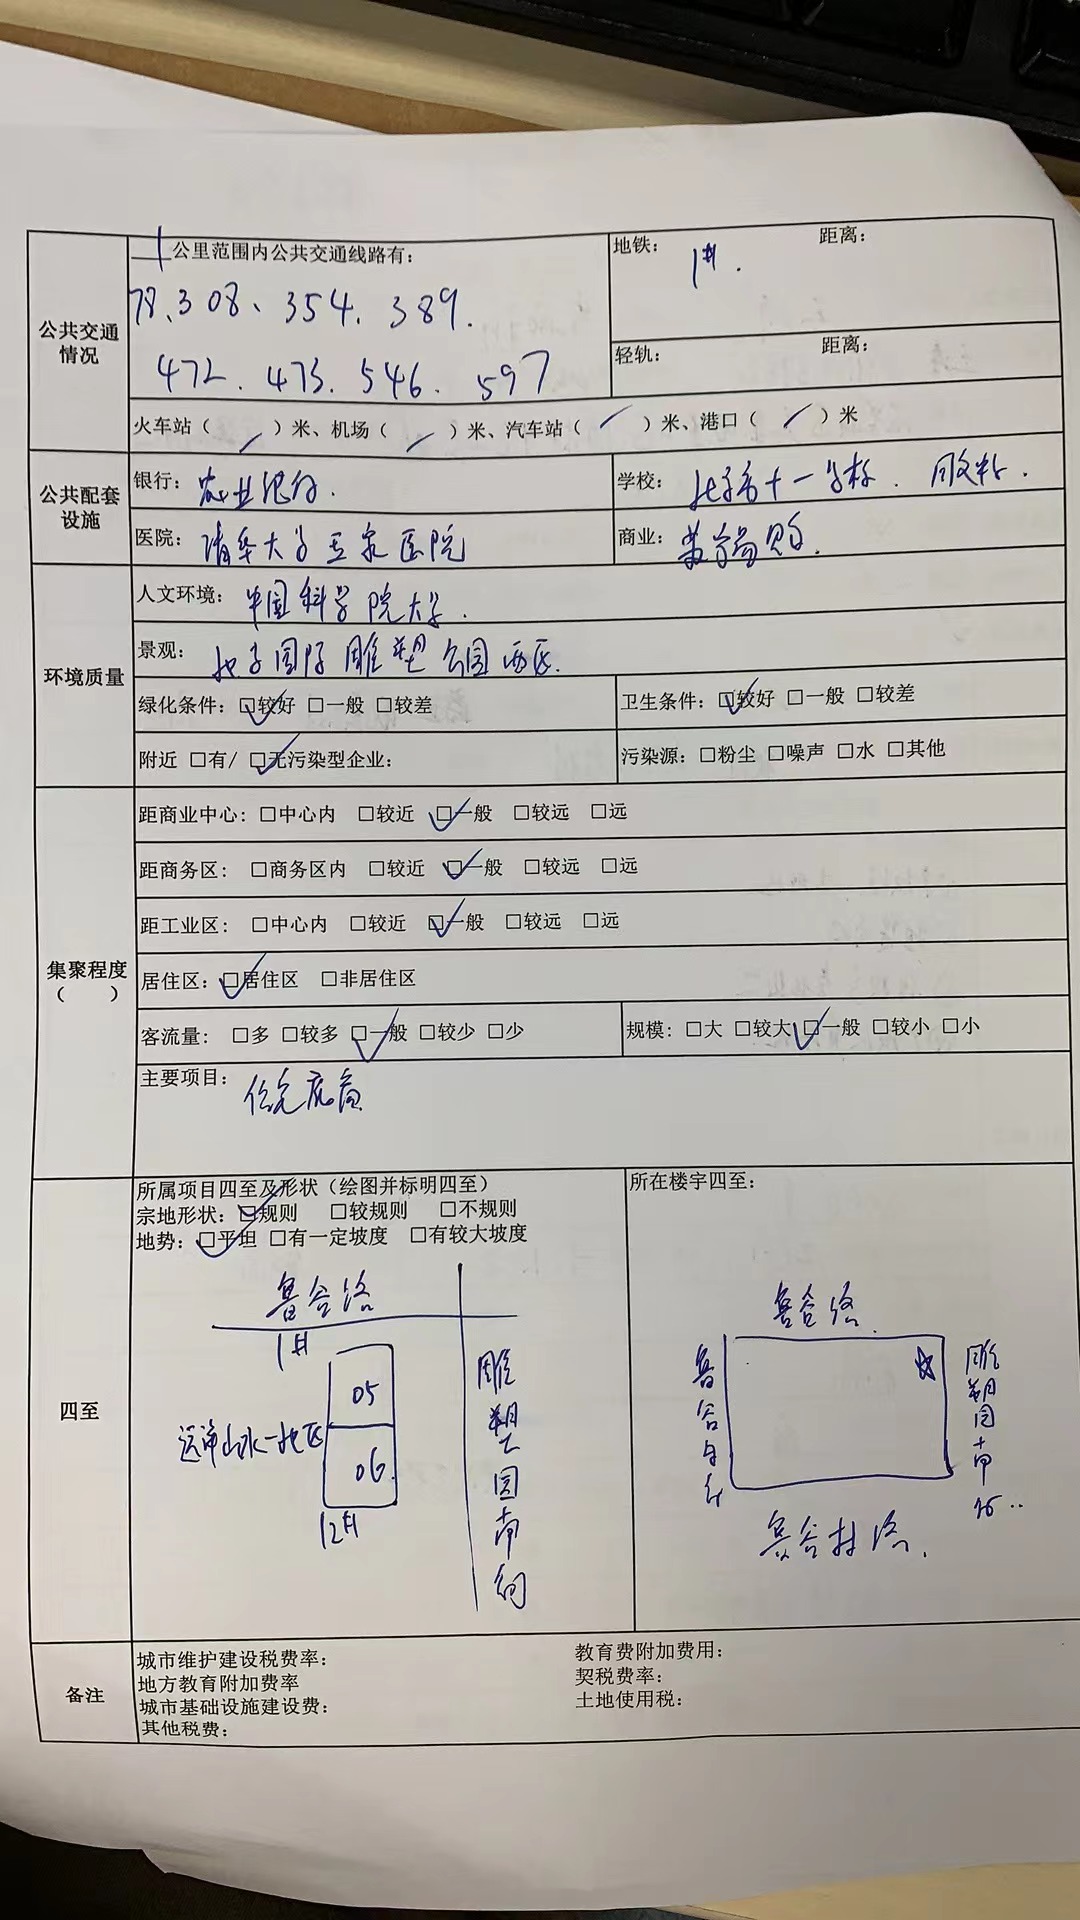 公共交通情况
1公里范围内公共交通线路有：
78、308、354.389.
472.473.546.597
地铁： 1#. 距离：
轻轨： 距离：
火车站（ / ）米、机场（ / ）米、汽车站（ / ）米、港口（ / ）米
公共配套设施
银行：农业银行.
学校：北京市十一学校.
医院：清华大学玉泉医院
商业：
环境质量
人文环境：中国科学院大学.
景观：北京国际雕塑公园西区.
绿化条件：☑较好 □一般 □较差
卫生条件：☑较好 □一般 □较差
附近 □有/ ☑无污染型企业：
污染源：□粉尘 □噪声 □水 □其他
集聚程度（ ）
距商业中心：□中心内 □较近 ☑一般 □较远 □远
距商务区：□商务区内 □较近 ☑一般 □较远 □远
距工业区：□中心内 □较近 ☑一般 □较远 □远
居住区：☑居住区 □非居住区
客流量：□多 □较多 ☑一般 □较少 □少
规模：□大 □较大 ☑一般 □较小 □小
主要项目：住宅底商
四至
所属项目四至及形状（绘图并标明四至）
宗地形状：☑规则 □较规则 □不规则
地势：☑平坦 □有一定坡度 □有较大坡度
鲁谷路
1#
05
远洋山水一地区
06
12#
雕塑园南街
所在楼宇四至：
鲁谷路.
鲁谷
雕塑园南街..
鲁谷村路.
备注
城市维护建设税费率：
教育费附加费用：
地方教育附加费率
契税费率：
城市基础设施建设费：
土地使用税：
其他税费：